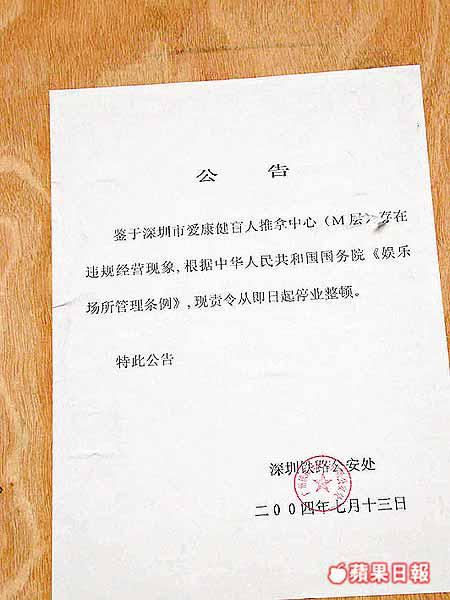 公 告
鉴于深圳市爱康健盲人推拿中心（M层）存在
违规经营现象，根据中华人民共和国国务院《娱乐
场所管理条例》，现责令从即日起停业整顿。
特此公告
深圳铁路公安处
二00四年七月十三日
蘋果日報